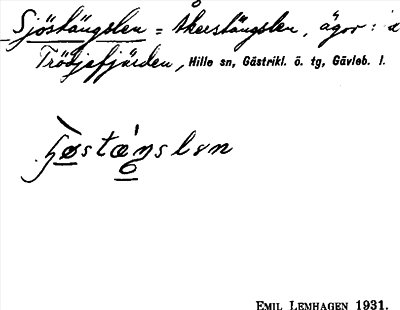 Sjöstängslen = Åkerstängslen, ägor : å
Trödjefjärden, Hille sn, Gästrikl. ö. tg, Gävleb. l.
EMIL LEMHAGEN 1931.